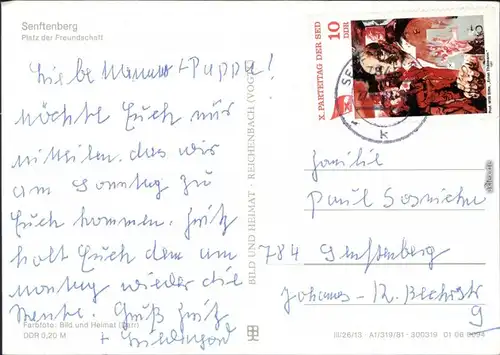 Senftenberg
Platz der Freundschaft
Liebe Mama + Pappa!
möchte Euch nur
mitteilen, das wir
am Sonntag zu
Euch kommen. Fritz
holt Euch dem am
montag wieder die
Rente. Gruß Fritz
+
Farbfoto: Bild und Heimat
DDR 0,20 M
BILD UND HEIMAT · REICHENBACH (VOGTL)
X. PARTEITAG DER SED
10
DDR
k
Familie
Paul
784 Senftenberg
Johannes-R. Becherstr
9
III/26/13 A1/319/81 300319 01 08 0094